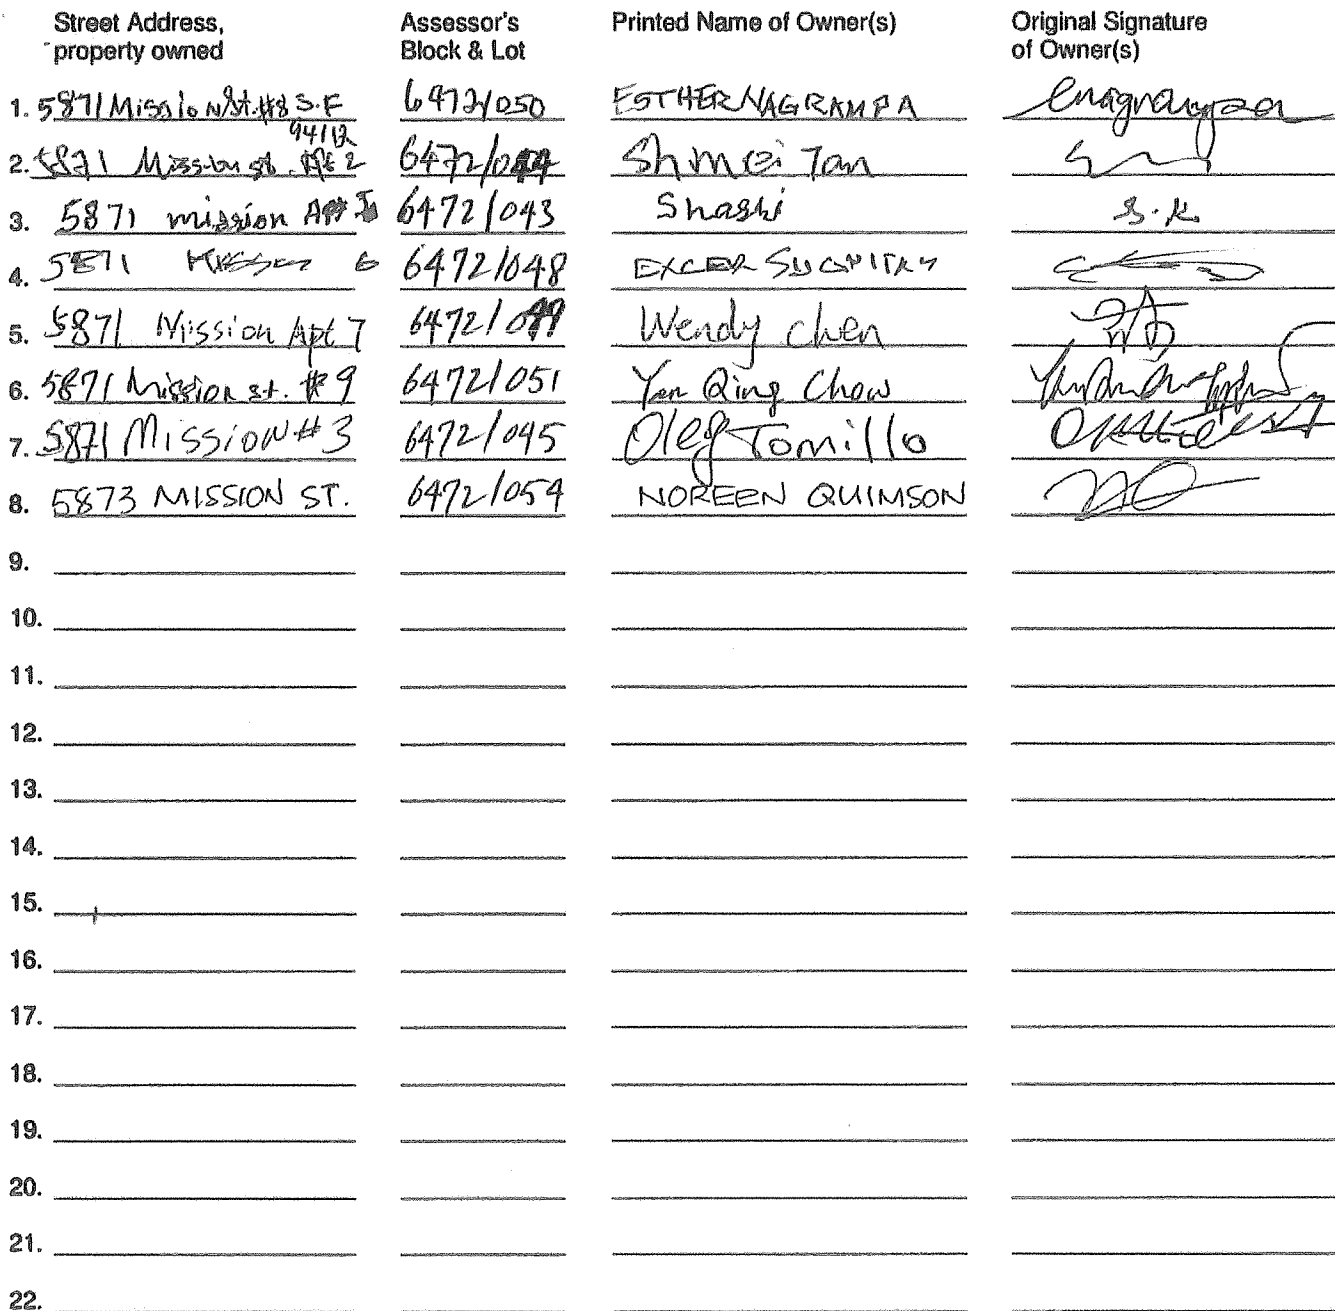 Street Address, Assessor's Printed Name of Owner(s) Original Signature
property owned Block & Lot of Owner(s)
1. 5871 Mission St. #8 S.F 6472/050 ESTHER NAGRAMPA
94112
2. 5871 Mission st. Apt 2 6472/044 Shmei Tan
3. 5871 mission Apt 6472/043 Shashi S.K
4. 5871 6 6472/048 EXCER
5. 5871 Mission Apt 7 6472/049 Wendy Chen
6. 5871 Mission st. #9 6472/051 Yan Qing Chow
7. 5871 Mission #3 6472/045 Oleg Tomillo
8. 5873 MISSION ST. 6472/054 NOREEN QUIMSON
9.
10.
11.
12.
13.
14.
15.
16.
17.
18.
19.
20.
21.
22.